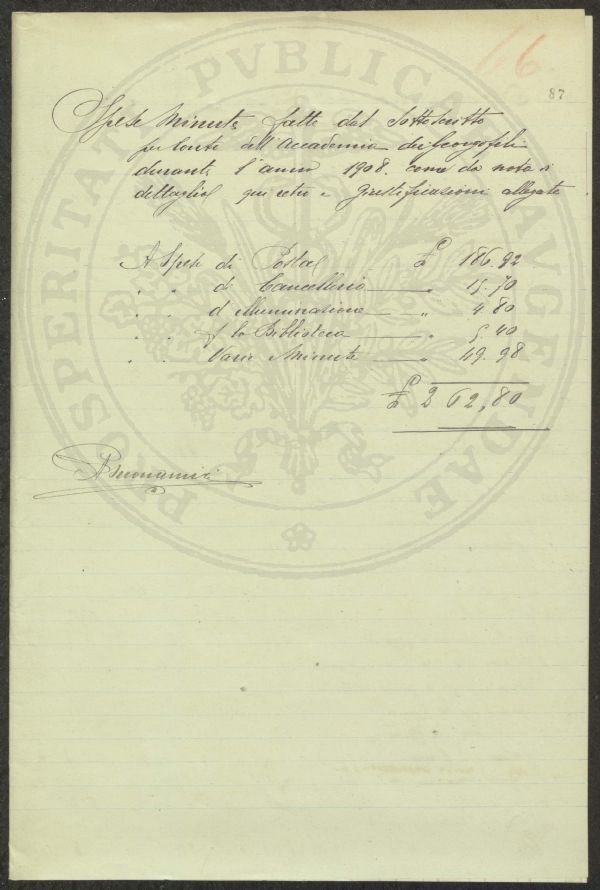 66
87
Spese Minute fatte dal Sottoscritto
per conto dell'Accademia dei Georgofili
durante l'anno 1908. come da nota a
dettaglio qui retro e Giustificazioni allegate
A Spese di Posta £ 186.92
" " di Cancelleria " 15.70
" " d'Illuminazione " 4.80
" " p lo Biblioteca " 5.40
" " Varie Minute " 49.98
£ 262,80
Buonamici
PROSPERITATI PVBLICAE AVGENDAE